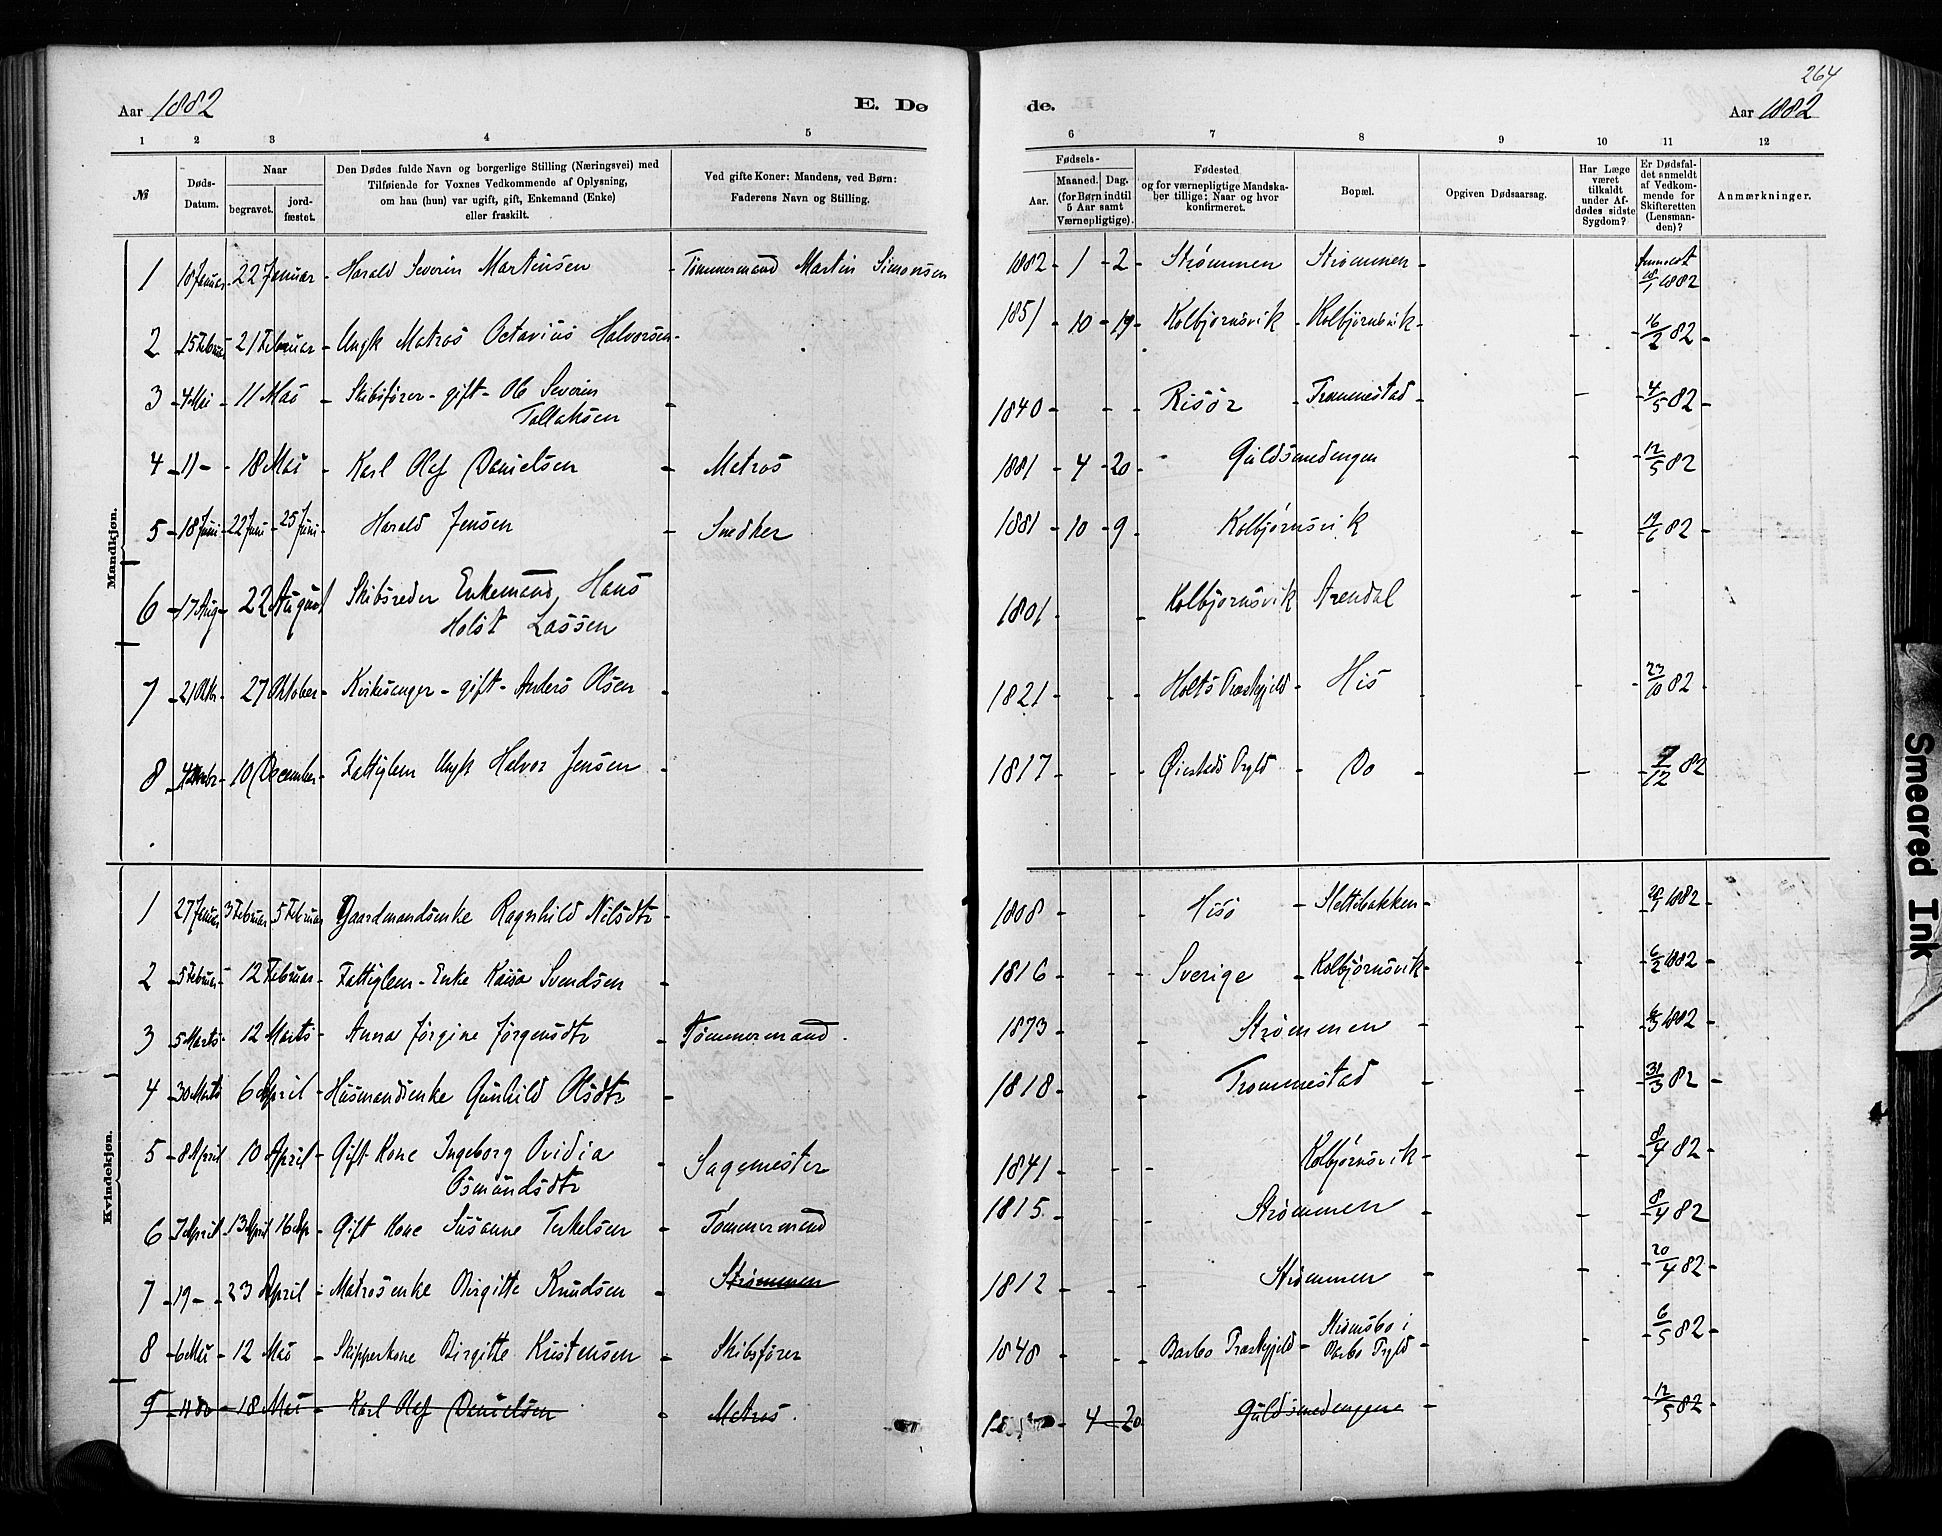 264
Aar 1882 E. Dø de. Aar 1882
1 2 3 4 5 6 7 8 9 10 11 12
№ Døds-Datum. Naar begravet. jord-fæstet. Den Dødes fulde Navn og borgerlige Stilling (Næringsvei) med Tilføiende for Voxnes Vedkommende af Oplysning, om han (hun) var ugift, gift, Enkemand (Enke) eller fraskilt. Ved gifte Koner: Mandens, ved Børn: Faderens Navn og Stilling. Fødsels- Aar. Maaned. Dag. (for Børn indtil 5 Aar samt Værnepligtige). Fødested og for værnepligtige Mandska-ber tillige: Naar og hvor konfirmeret. Bopæl. Opgiven Dødsaarsag. Har Læge været tilkaldt under Af-dødes sidste Sygdom? Er Dødsfal-det anmeldt af Vedkom-mende for Skifteretten (Lensman-den)? Anmærkninger.
Mandkjøn.
1 18 Januar 22 Januar Harald Severin Martinsen Tømmermand Martin Simonsen 1882 1 2 Strømmen Strømmen 18/1 1882
2 15 Februar 21 Februar Ungk Matros Octavius Halvorsen 1851 10 19 Kolbjørnsvik Kolbjørnsvik 16/2 82
3 4 Mai 11 Mai Skibsfører - gift - Ole Severin 1840 Risør Trommestad 4/5 82
Tallaksen
4 11 - 18 Mai Karl Olaf Danielsen Matros 1881 4 20 Guldsmedengen 12/5 82
5 18 Juni 22 Juni 25 Juni Harald Jensen Snedker 1881 10 9 Kolbjørnsvik 19/6 82
6 17 Aug 22 August Skibsreder Enkemand, Hans 1801 Kolbjørnsvik Arendal
Holst Lassen
7 21 Oktr 27 Oktober Kirkesanger - gift - Anders Olsen 1821 Holts Præstegjeld His 23/10 82
8 4 Decbr 10 December Fattiglem Ungk Halvor Jensen 1817 Øiestads Prgld Do 7/12 82
Kvindekjøn.
1 27 Januar 3 Februar 5 Februar Gaardmandsenke Ragnhild Nilsdtr 1808 Hisø Slettebakken 28/1 1882
2 5 Februar 12 Februar Fattiglem - Enke Kaisa Svendsen 1816 Sverige Kolbjørnsvik 6/2 1882
3 5 Marts 12 Marts Anna Jørgine Jørgensdtr Tømmermand 1873 Strømmen 6/3 1882
4 30 Marts 6 April Husmandsenke Gunhild Olsdtr 1818 Trommestad 31/3 82
5 8 April 10 April Gift Kone Ingeborg Ovidia Sagemester 1841 Kolbjørnsvik 8/4 82
Osmundsdtr
6 7 April 13 April 16 Apr Gift Kone Susanne Terkelsen Tømmermand 1815 Strømmen 8/4 82
7 19 - 23 April Matrosenke Birgitte Knudsen Strømmen 1812 Strømmen 20/4 82
8 6 Mai 12 Mai Skipperkone Birgitte Kristensen Skibsfører 1848 Barbo Præstegjeld Strømsbo i Barbo Prgld 6/5 82
9 11 do 18 Mai Karl Olaf Danielsen Matros 4 20 Guldsmedengene 12/5 82
Smeared Ink